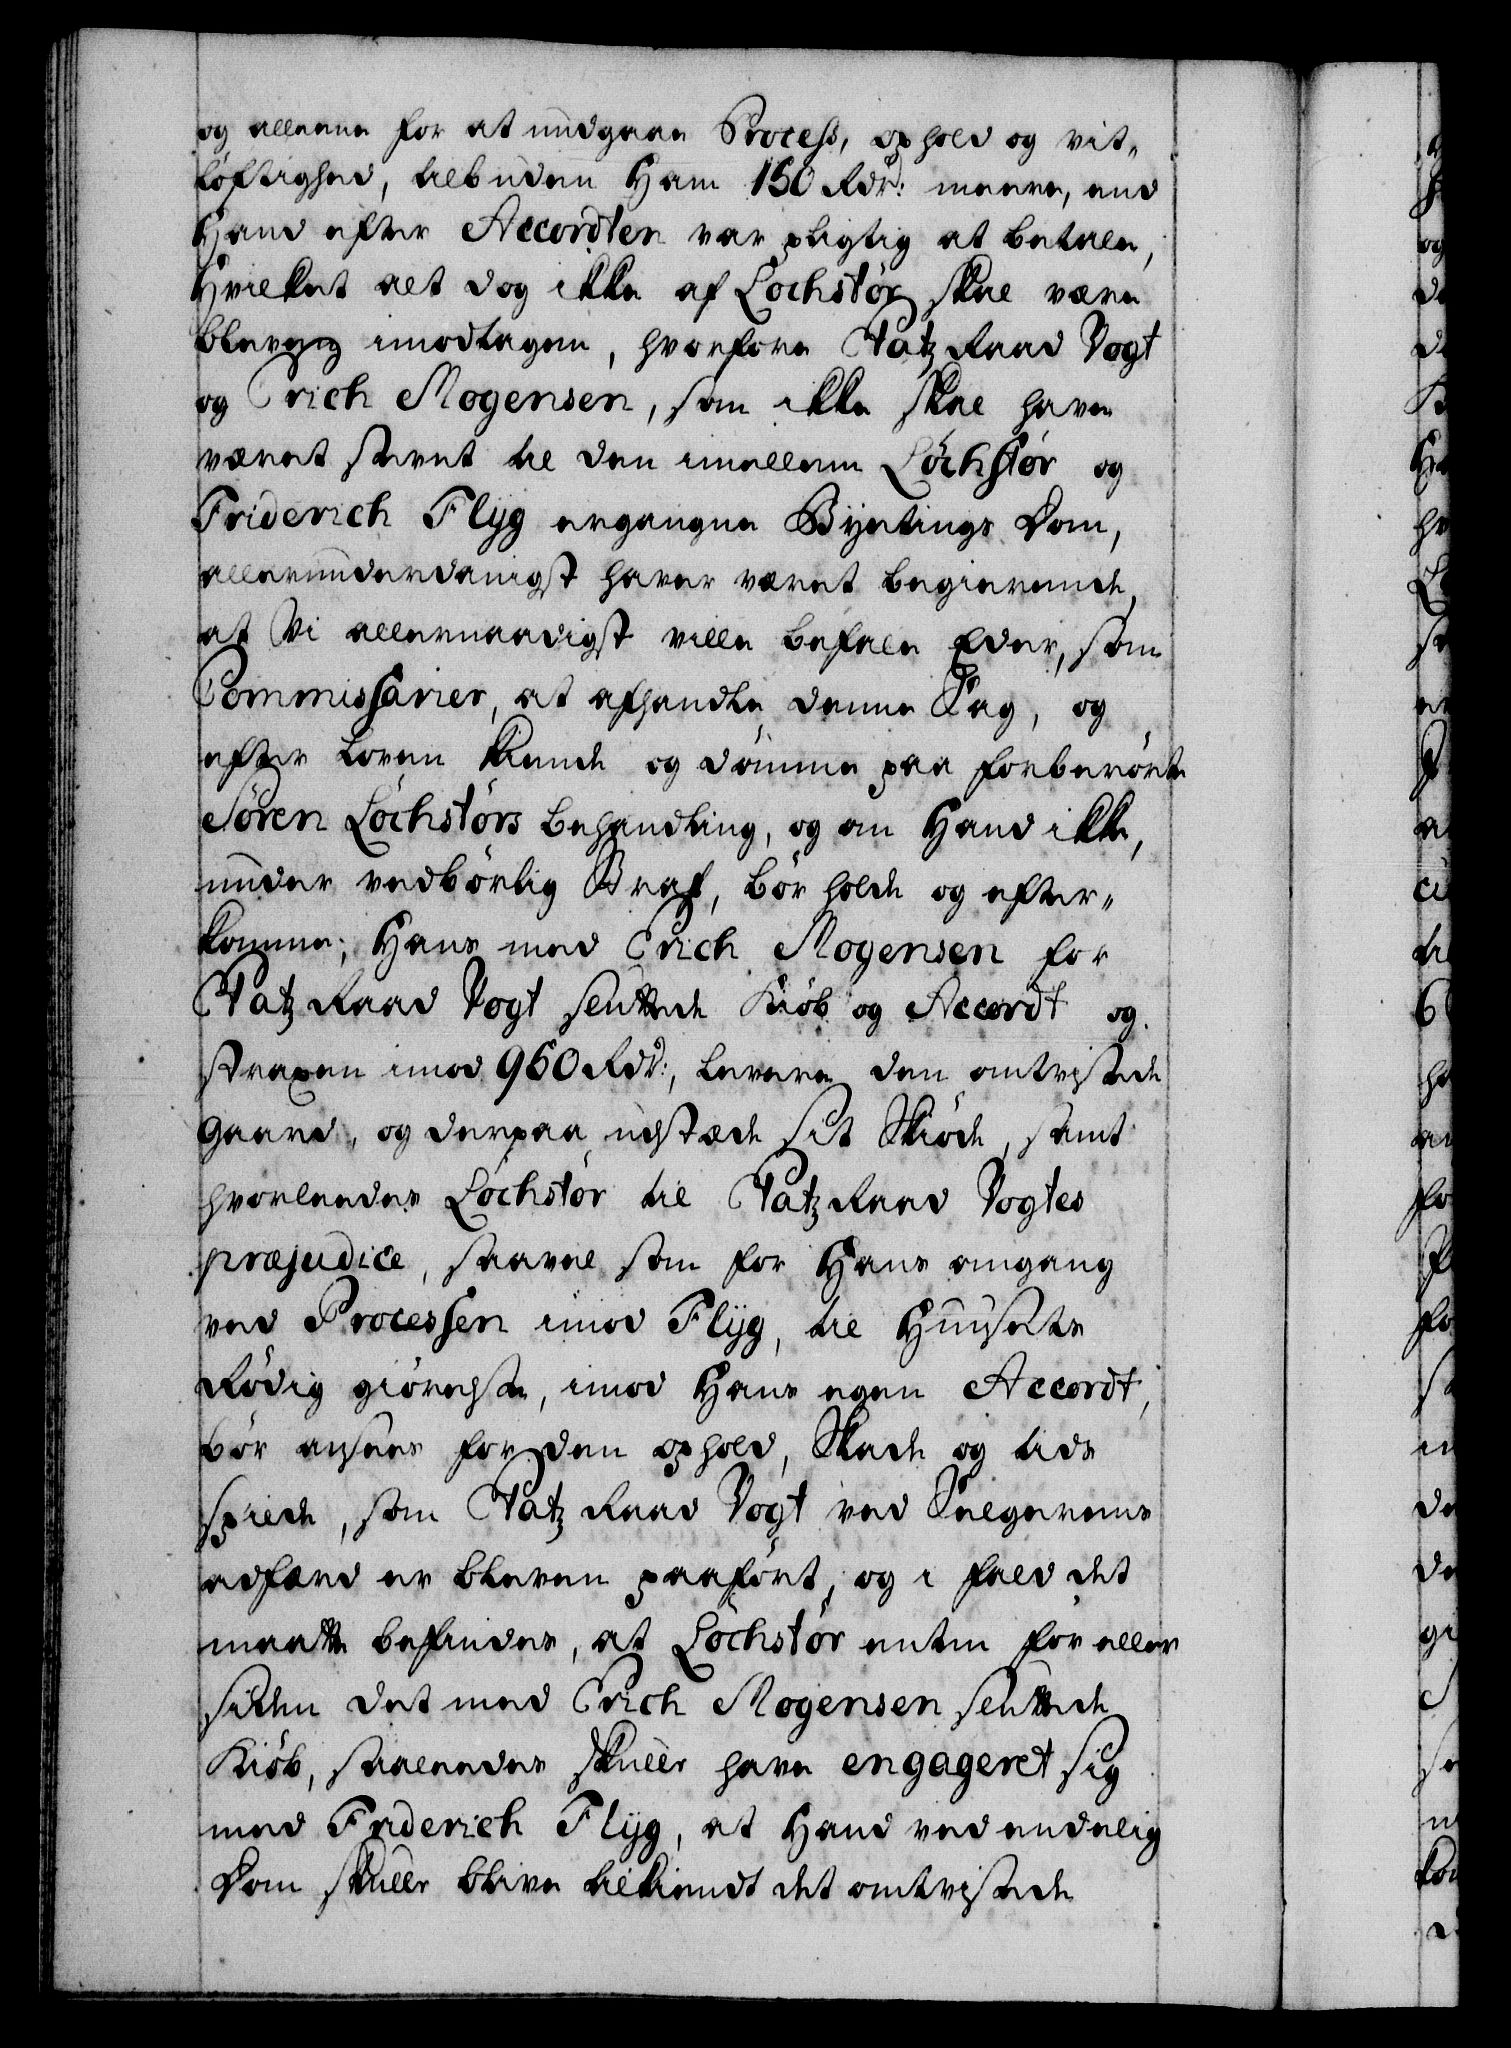 og alleene for at undgaae Process, ophold og vit-
løftighed, tilbuden Ham 150 Rdr: meere, end
Hand efter Accordten var pligtig at betale,
Hvilket alt dog ikke af Lochstør skal være
bleven imodtagen, hvorfore Etatz Raad Vogt
og Erich Mogensen, som ikke skal have
været stevnt til den imellem Löchstør og
Friderich Flyg ergangne Byetings Dom,
allerunderdanigst haver været begierende,
at Vi allernaadigst ville befale Eder, som
Commissarier, at afhandle denne Sag, og
efter Loven kiende og dömme paa forberörte
Sören Löchstörs behandling, og om Hand ikke,
under vedbörlig Straf, bör holde og efter-
komme, Hans med Erich Mogensen for
Etatz Raad Vogt sluttede Kiöb og Accordt og
straxen imod 960 Rdr:, levere den omtvistede
Gaard, og derpaa udstæde sit Skiöde, samt
hvorleedes Löchstör til Etatz Raad Vogtes
præjudice, saavel som for Hans omgang
ved Processen imod Flyg, til Huusets
Rödig giörelse, imod Hans egen Accordt,
bör ansees for den ophold, Skade og tids
spilde, som Etatz Raad Vogt ved Sælgerens
adfærd er bleven paafört, og i fald det
maatte befindes, at Löchstör enten för eller
siden det med Erich Mogensen sluttede
Kiöb, saaleedes skulle have engageret sig
med Friderich Flyg, at Hand ved endelig
Dom skulle blive tilkiendt det omtvistede